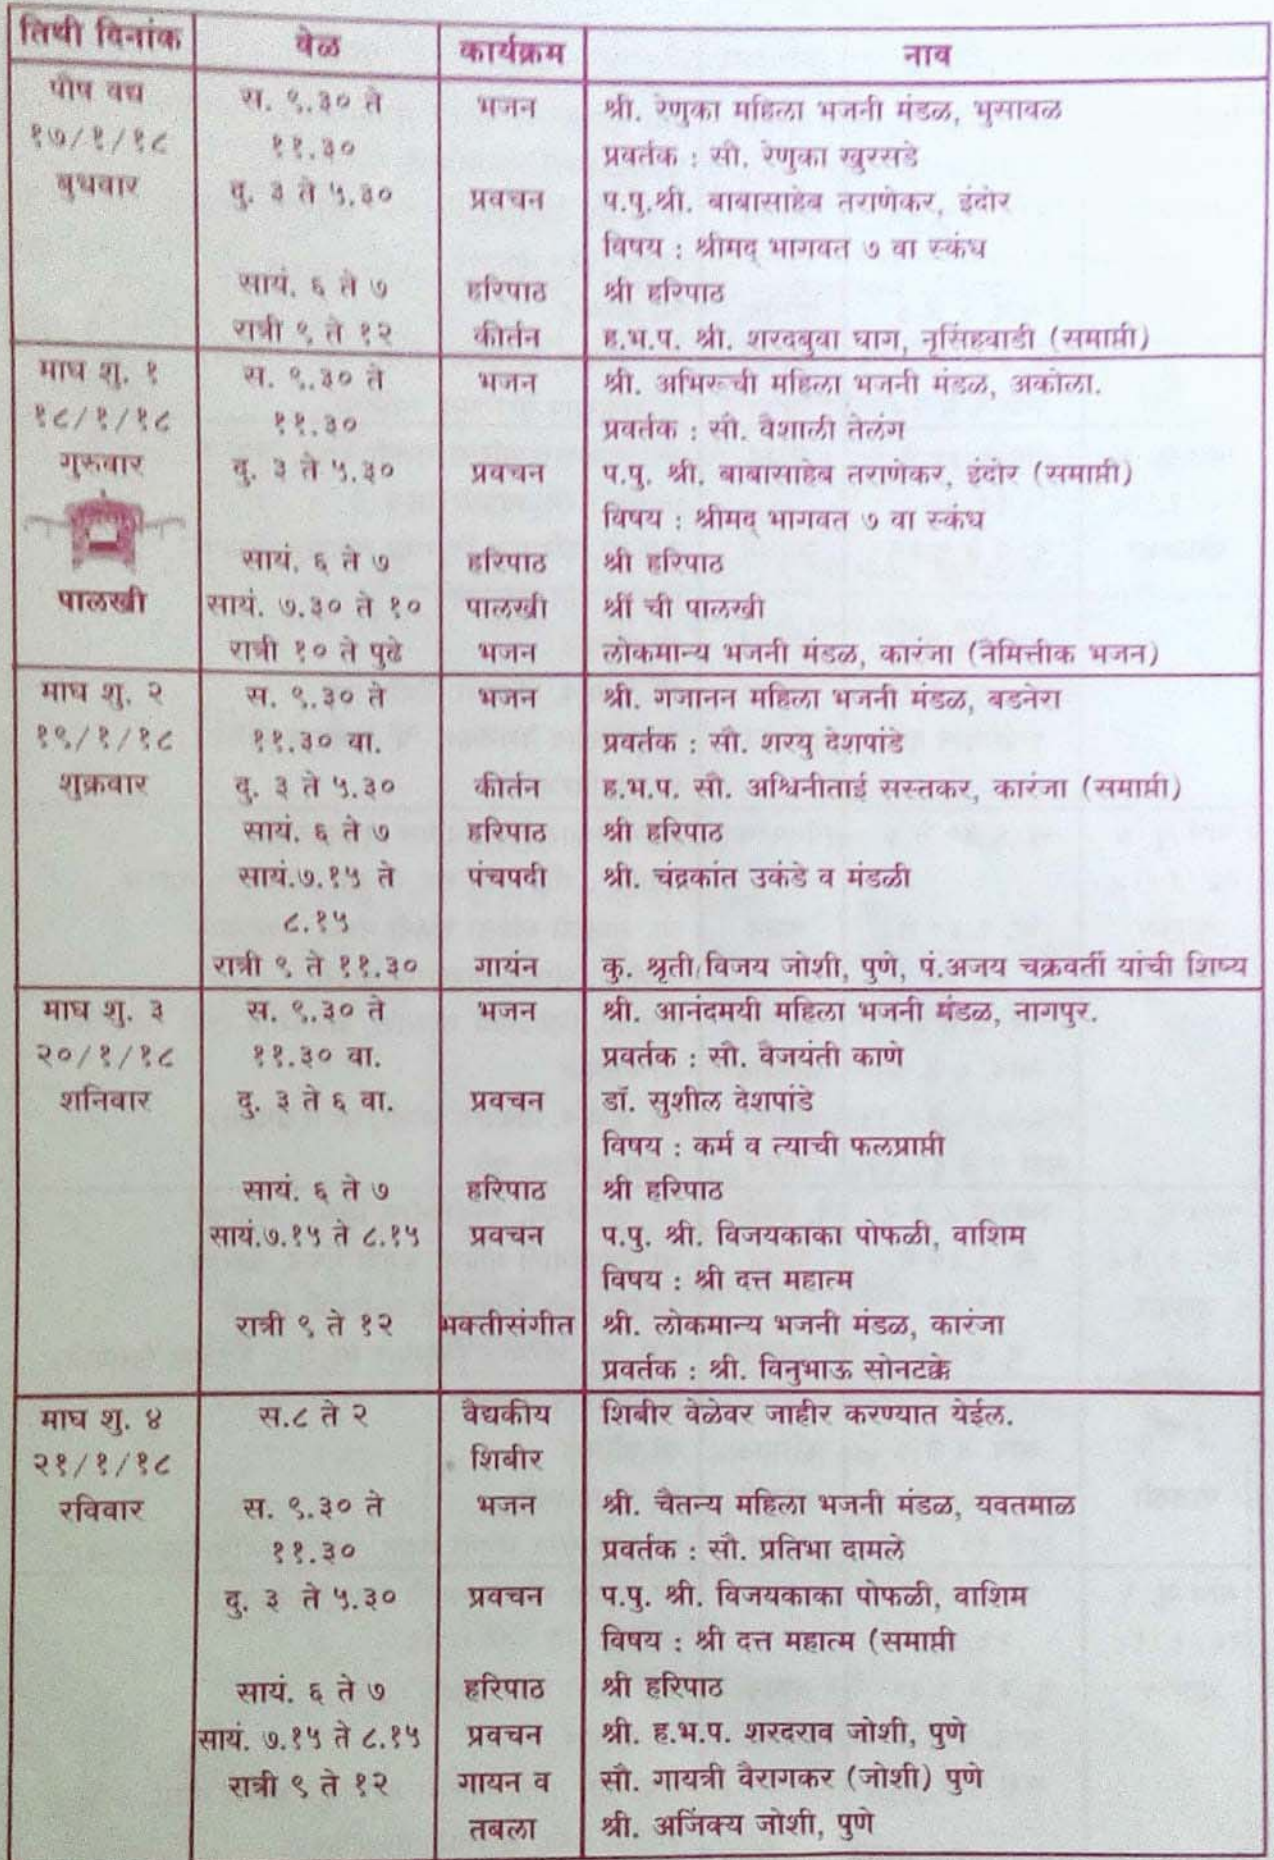 तिथी दिनांक वेळ कार्यक्रम नाव
पौष वद्य स. ९.३० ते भजन श्री. रेणुका महिला भजनी मंडळ, भुसावळ
१७/१/१८ ११.३० प्रवर्तक : सौ. रेणुका खुरसडे
बुधवार दु. ३ ते ५.३० प्रवचन प.पु.श्री. बाबासाहेब तराणेकर, इंदोर
विषय : श्रीमद् भागवत ७ वा स्कंध
सायं. ६ ते ७ हरिपाठ श्री हरिपाठ
रात्री ९ ते १२ कीर्तन ह.भ.प. श्री. शरदबुवा घाग, नृसिंहवाडी (समाप्ती)
माघ शु. १ स. ९.३० ते भजन श्री. अभिरूची महिला भजनी मंडळ, अकोला.
१८/१/१८ ११.३० प्रवर्तक : सौ. वैशाली तेलंग
गुरुवार दु. ३ ते ५.३० प्रवचन प.पु. श्री. बाबासाहेब तराणेकर, इंदोर (समाप्ती)
विषय : श्रीमद् भागवत ७ वा स्कंध
सायं. ६ ते ७ हरिपाठ श्री हरिपाठ
पालखी सायं. ७.३० ते १० पालखी श्रीं ची पालखी
रात्री १० ते पुढे भजन लोकमान्य भजनी मंडळ, कारंजा (नैमित्तीक भजन)
माघ शु. २ स. ९.३० ते भजन श्री. गजानन महिला भजनी मंडळ, बडनेरा
१९/१/१८ ११.३० वा. प्रवर्तक : सौ. शरयु देशपांडे
शुक्रवार दु. ३ ते ५.३० कीर्तन ह.भ.प. सौ. अश्विनीताई सस्तकर, कारंजा (समाप्ती)
सायं. ६ ते ७ हरिपाठ श्री हरिपाठ
सायं.७.१५ ते पंचपदी श्री. चंद्रकांत उकंडे व मंडळी
८.१५
रात्री ९ ते ११.३० गायंन कु. श्रृती विजय जोशी, पुणे, पं.अजय चक्रवर्ती यांची शिष्य
माघ शु. ३ स. ९.३० ते भजन श्री. आनंदमयी महिला भजनी मंडळ, नागपुर.
२०/१/१८ ११.३० वा. प्रवर्तक : सौ. वैजयंती काणे
शनिवार दु. ३ ते ६ वा. प्रवचन डॉ. सुशील देशपांडे
विषय : कर्म व त्याची फलप्राप्ती
सायं. ६ ते ७ हरिपाठ श्री हरिपाठ
सायं.७.१५ ते ८.१५ प्रवचन प.पु. श्री. विजयकाका पोफळी, वाशिम
विषय : श्री दत्त महात्म
रात्री ९ ते १२ भक्तीसंगीत श्री. लोकमान्य भजनी मंडळ, कारंजा
प्रवर्तक : श्री. विनुभाऊ सोनटक्के
माघ शु. ४ स.८ ते २ वैद्यकीय शिबीर वेळेवर जाहीर करण्यात येईल.
२१/१/१८ शिबीर
रविवार स. ९.३० ते भजन श्री. चैतन्य महिला भजनी मंडळ, यवतमाळ
११.३० प्रवर्तक : सौ. प्रतिभा दामले
दु. ३ ते ५.३० प्रवचन प.पु. श्री. विजयकाका पोफळी, वाशिम
विषय : श्री दत्त महात्म (समाप्ती
सायं. ६ ते ७ हरिपाठ श्री हरिपाठ
सायं. ७.१५ ते ८.१५ प्रवचन श्री. ह.भ.प. शरदराव जोशी, पुणे
रात्री ९ ते १२ गायन व सौ. गायत्री वैरागकर (जोशी) पुणे
तबला श्री. अजिंक्य जोशी, पुणे